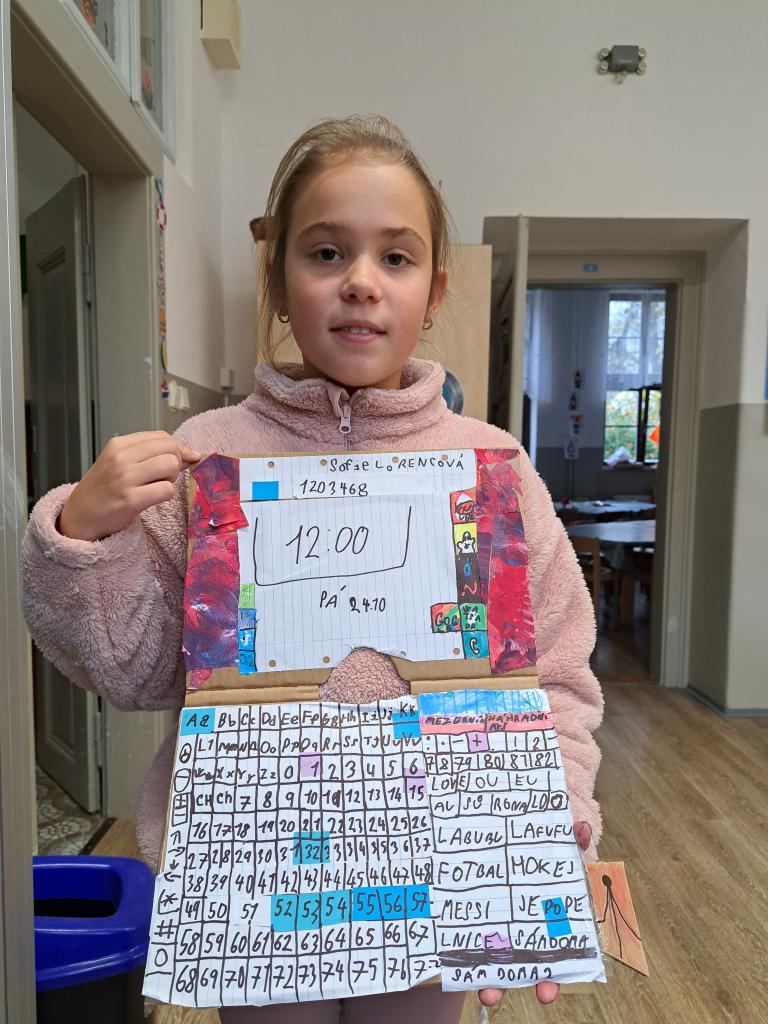 Sofie LORENCOVÁ
1203468
12:00
PÁ 24.10
Aa Bb Cc Dd Ee Ff Gg Hh Ii Jj Kk
L1 Mm Nn Oo Pp Qq Rr Ss Tt Uu Vv
Xx Yy Zz 0 1 2 3 4 5 6
CH Ch 7 8 9 10 11 12 13 14 15
16 17 18 19 20 21 22 23 24 25 26
27 28 29 30 31 32 33 34 35 36 37
38 39 40 41 42 43 44 45 46 47 48
* 49 50 51 52 53 54 55 56 57
# 58 59 60 61 62 63 64 65 66 67
68 69 70 71 72 73 74 75 76 77
MEZERNÍK NÁHRADNÍ
: . - +
78 79 80 81 82
LOVE OU EU
AU SU RONALDO
LABUBU LAFUFU
FOTBAL HOKEJ
MESSI SE POPE
LNICE SÁM DOMA
SÁM DOMA2